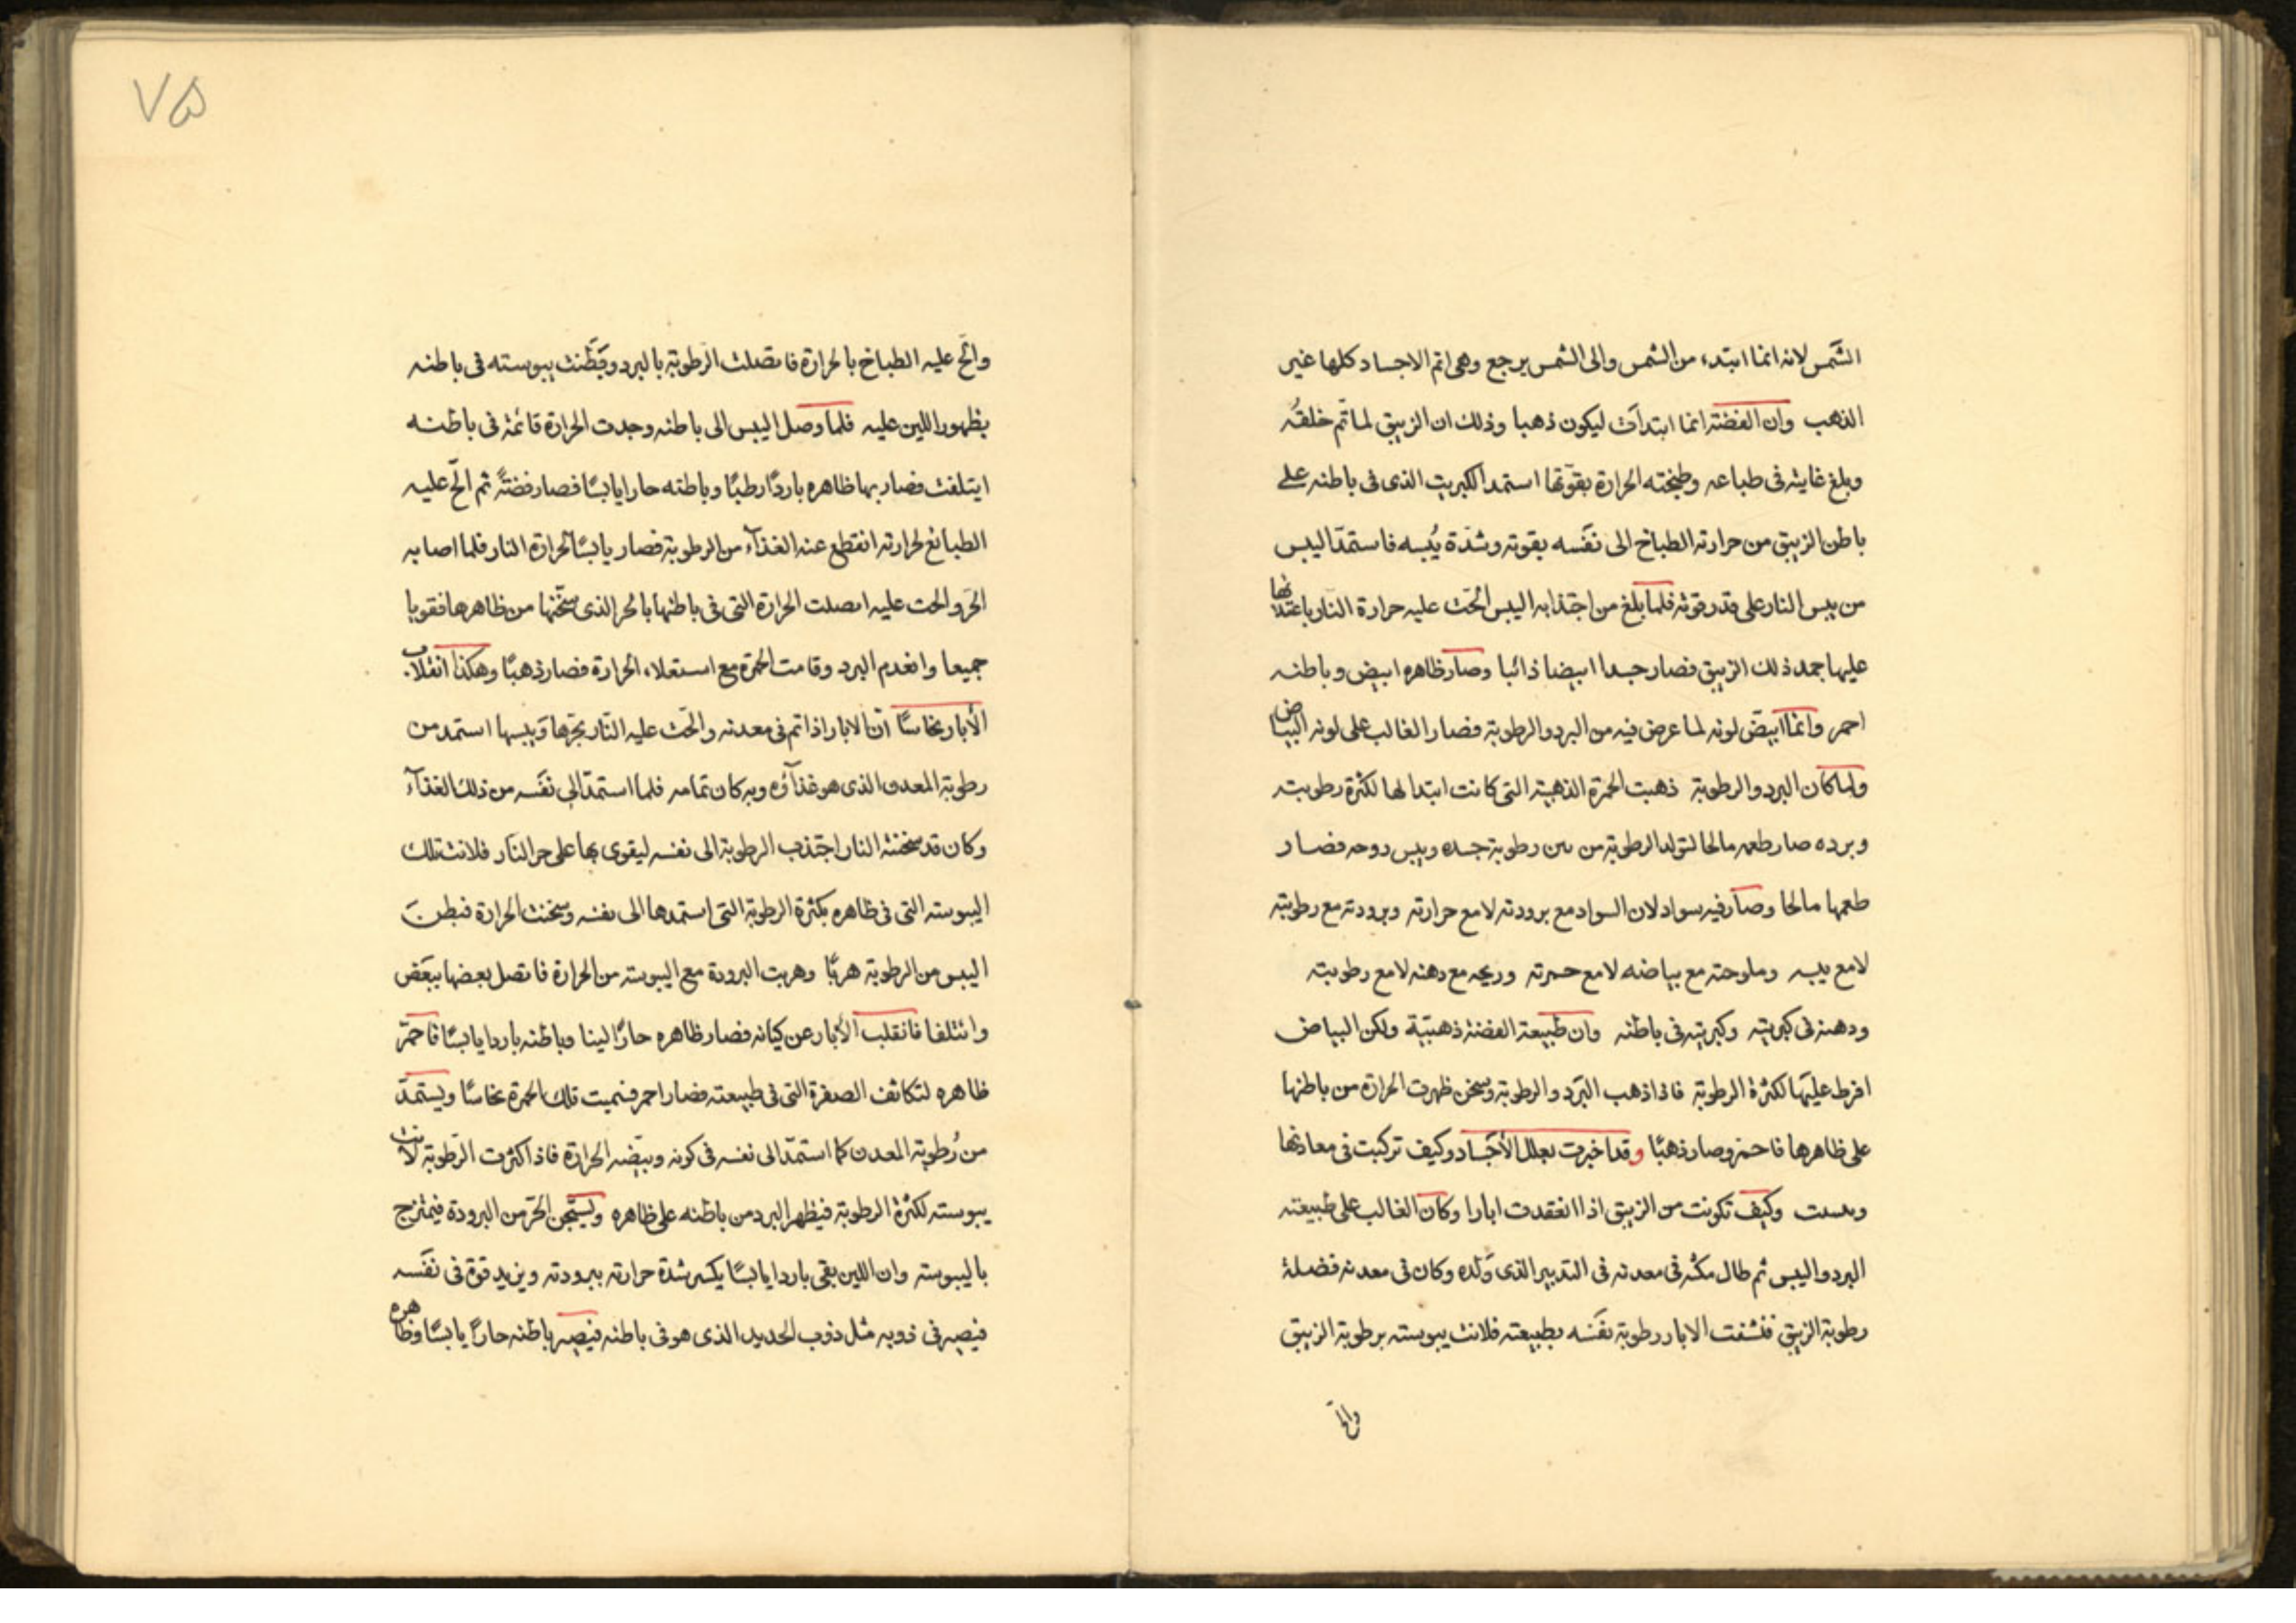 الشمس لانه انما ابتدء من الشمس والى الشمس يرجع وهى اتم الاجساد كلها غير
الذهب وان الفضة انما ابتدأت ليكون ذهبا وذلك ان الزيبق لما تم خلقه
وبلغ غايته فى طباعه وطبخته الحرارة بقوتها استمد الكبريت الذى فى باطنه على
باطن الزيبق من حرارته الطباخ الى نفسه بقوته وشدة يبسه فاستمد اليبس
من يبس النار على قدر قوته فلما بلغ من اجتذابه اليبس الحت عليه حرارة النار باعتدالها
عليها جمد ذلك الزيبق فصار جسدا ابيضا ذائبا وصار ظاهره ابيض وباطنه
احمر وانما ابيض لونه لما عرض فيه من البرد والرطوبة فصار الغالب على لونه البياض
ولما كان البرد والرطوبة ذهبت الحمرة الذهبية التى كانت ابتدا لها لكثرة رطوبته
وبرده صار طعمه مالحا لتولد الرطوبة من بين رطوبة جسده ويبس روحه فصار
طعمها مالحا وصار فيه سواد لان السواد مع برودته لا مع حرارته وبرودته مع رطوبته
لا مع يبسه وملوحته مع بياضه لا مع حمرته وريحه مع دهنه لا مع رطوبته
ودهنه فى كبريته وكبريته فى باطنه وان طبيعة الفضة ذهبية ولكن البياض
افرط عليها لكثرة الرطوبة فاذا ذهب البرد والرطوبة وسخن ظهرت الحرارة من باطنها
على ظاهرها فاحمر وصار ذهبا وقد اخبرت بعلل الأجساد وكيف تركبت فى معادنها
وكيف تكونت من الزيبق اذا انعقدت ابارا وكان الغالب على طبيعته
البرد واليبس ثم طال مكثه فى معدنه فى التدبير الذى ولده وكان فى معدنه فضلة
رطوبة الزيبق فنشفت الابار رطوبة نفسه بطبيعته فلانت يبوسته برطوبة الزيبق
والح
٧٥
والح عليه الطباخ بالحرارة فاتصلت الرطوبة بالبرد وبطنت يبوسته فى باطنه
بظهور اللين عليه فلما وصل اليبس الى باطنه وجدت الحرارة قائمة فى باطنه
ايتلفت فصار بها ظاهره باردا رطبا وباطنه حارا يابسا فصار فضة ثم الح عليه
الطبائع لحرارته انقطع عنه الغذاء من الرطوبة فصار يابسا لحرارة النار فلما اصابه
الحر والحت عليه اتصلت الحرارة التى فى باطنها بالحر الذى سخنها من ظاهرها فقويا
جميعا وانعدم البرد وقامت الحمرة مع استعلاء الحرارة فصار ذهبا وهكذا انقلاب
الأبار نحاسا ان الابار اذا تم فى معدنه والحت عليه النار بحرها ويبسها استمد من
رطوبة المعدن الذى هو غذاؤه وبه كان تمامه فلما استمد الى نفسه من ذلك الغذاء
وكان قد سخنته النار اجتذب الرطوبة الى نفسه ليقوى بها على حر النار فلانت تلك
اليبوسة التى فى ظاهره بكثرة الرطوبة التى استمدها الى نفسه وسخنت الحرارة فبطن
اليبس من الرطوبة هربا وهربت البرودة مع اليبوسة من الحرارة فاتصل بعضها ببعض
وائتلفا فانقلب الأبار عن كيانه فصار ظاهره حارا لينا وباطنه باردا يابسا فاحمر
ظاهره لتكاثف الصفرة التى فى طبيعته فصار احمر فسميت تلك الحمرة نحاسا ويستمد
من رطوبة المعدن كما استمد الى نفسه فى كونه وبيضه الحرارة فاذا كثرت الرطوبة لانت
يبوسته لكثرة الرطوبة فيظهر البرد من باطنه على ظاهره ويستجن الحر من البرودة فيمتزج
باليبوسة وان اللين بقى باردا يابسا يكسر شدة حرارته ببرودته ويزيد قوة فى نفسه
فيصير فى ذوبه مثل ذوب الحديد الذى هو فى باطنه فيصير باطنه حارا يابسا وظاهره